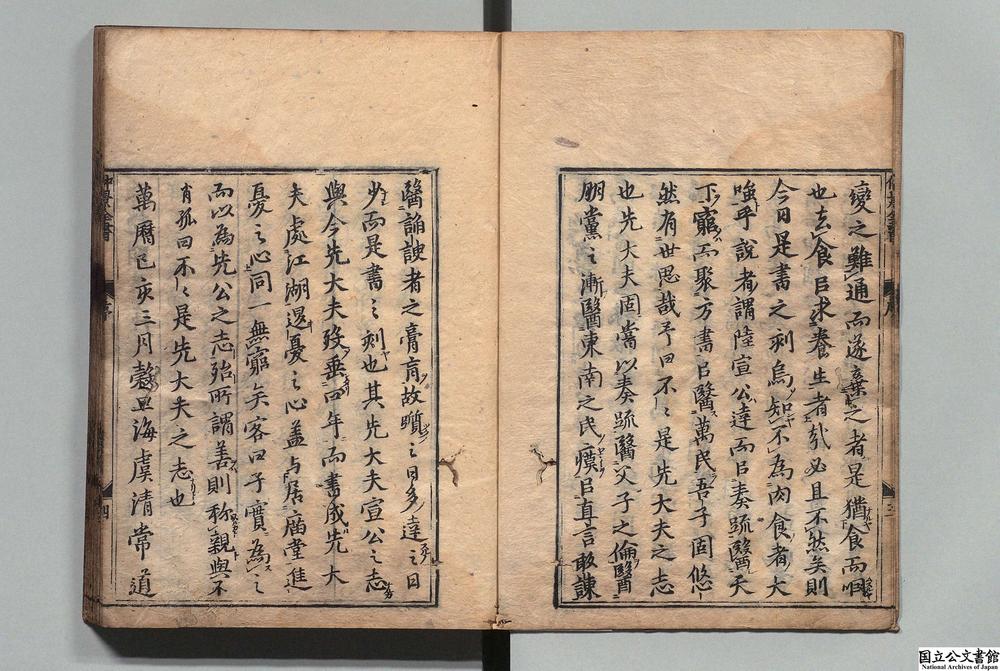 變之難通而遂棄之者是猶食而咽
也去食以求養生者哉必且不然矣則
今日是書之刻烏知不為肉食者大
嗤乎說者謂陸宣公達而以奏疏醫天
下窮而聚方書以醫萬民吾子固悠
然有世思哉予曰不〻是先大夫之志
也先大夫固嘗以奏疏醫父子之倫醫
朋黨之漸醫東南之民瘼以直言敢諫
醫諭諛者之膏肓故躓之日多達之日
少而是書之刻也其先大夫宣公之志
與今先大夫歿垂四年而書成先大
夫處江湖退憂之心盖与居廟堂進
憂之心同一無窮矣客曰子實為之
而以為先公之志殆所謂善則稱親與不
肖孤曰不〻是先大夫之志也
萬曆己亥三月穀旦海虞清常道
仲景全書
序
三
仲景全書
序
四
国立公文書館
National Archives of Japan